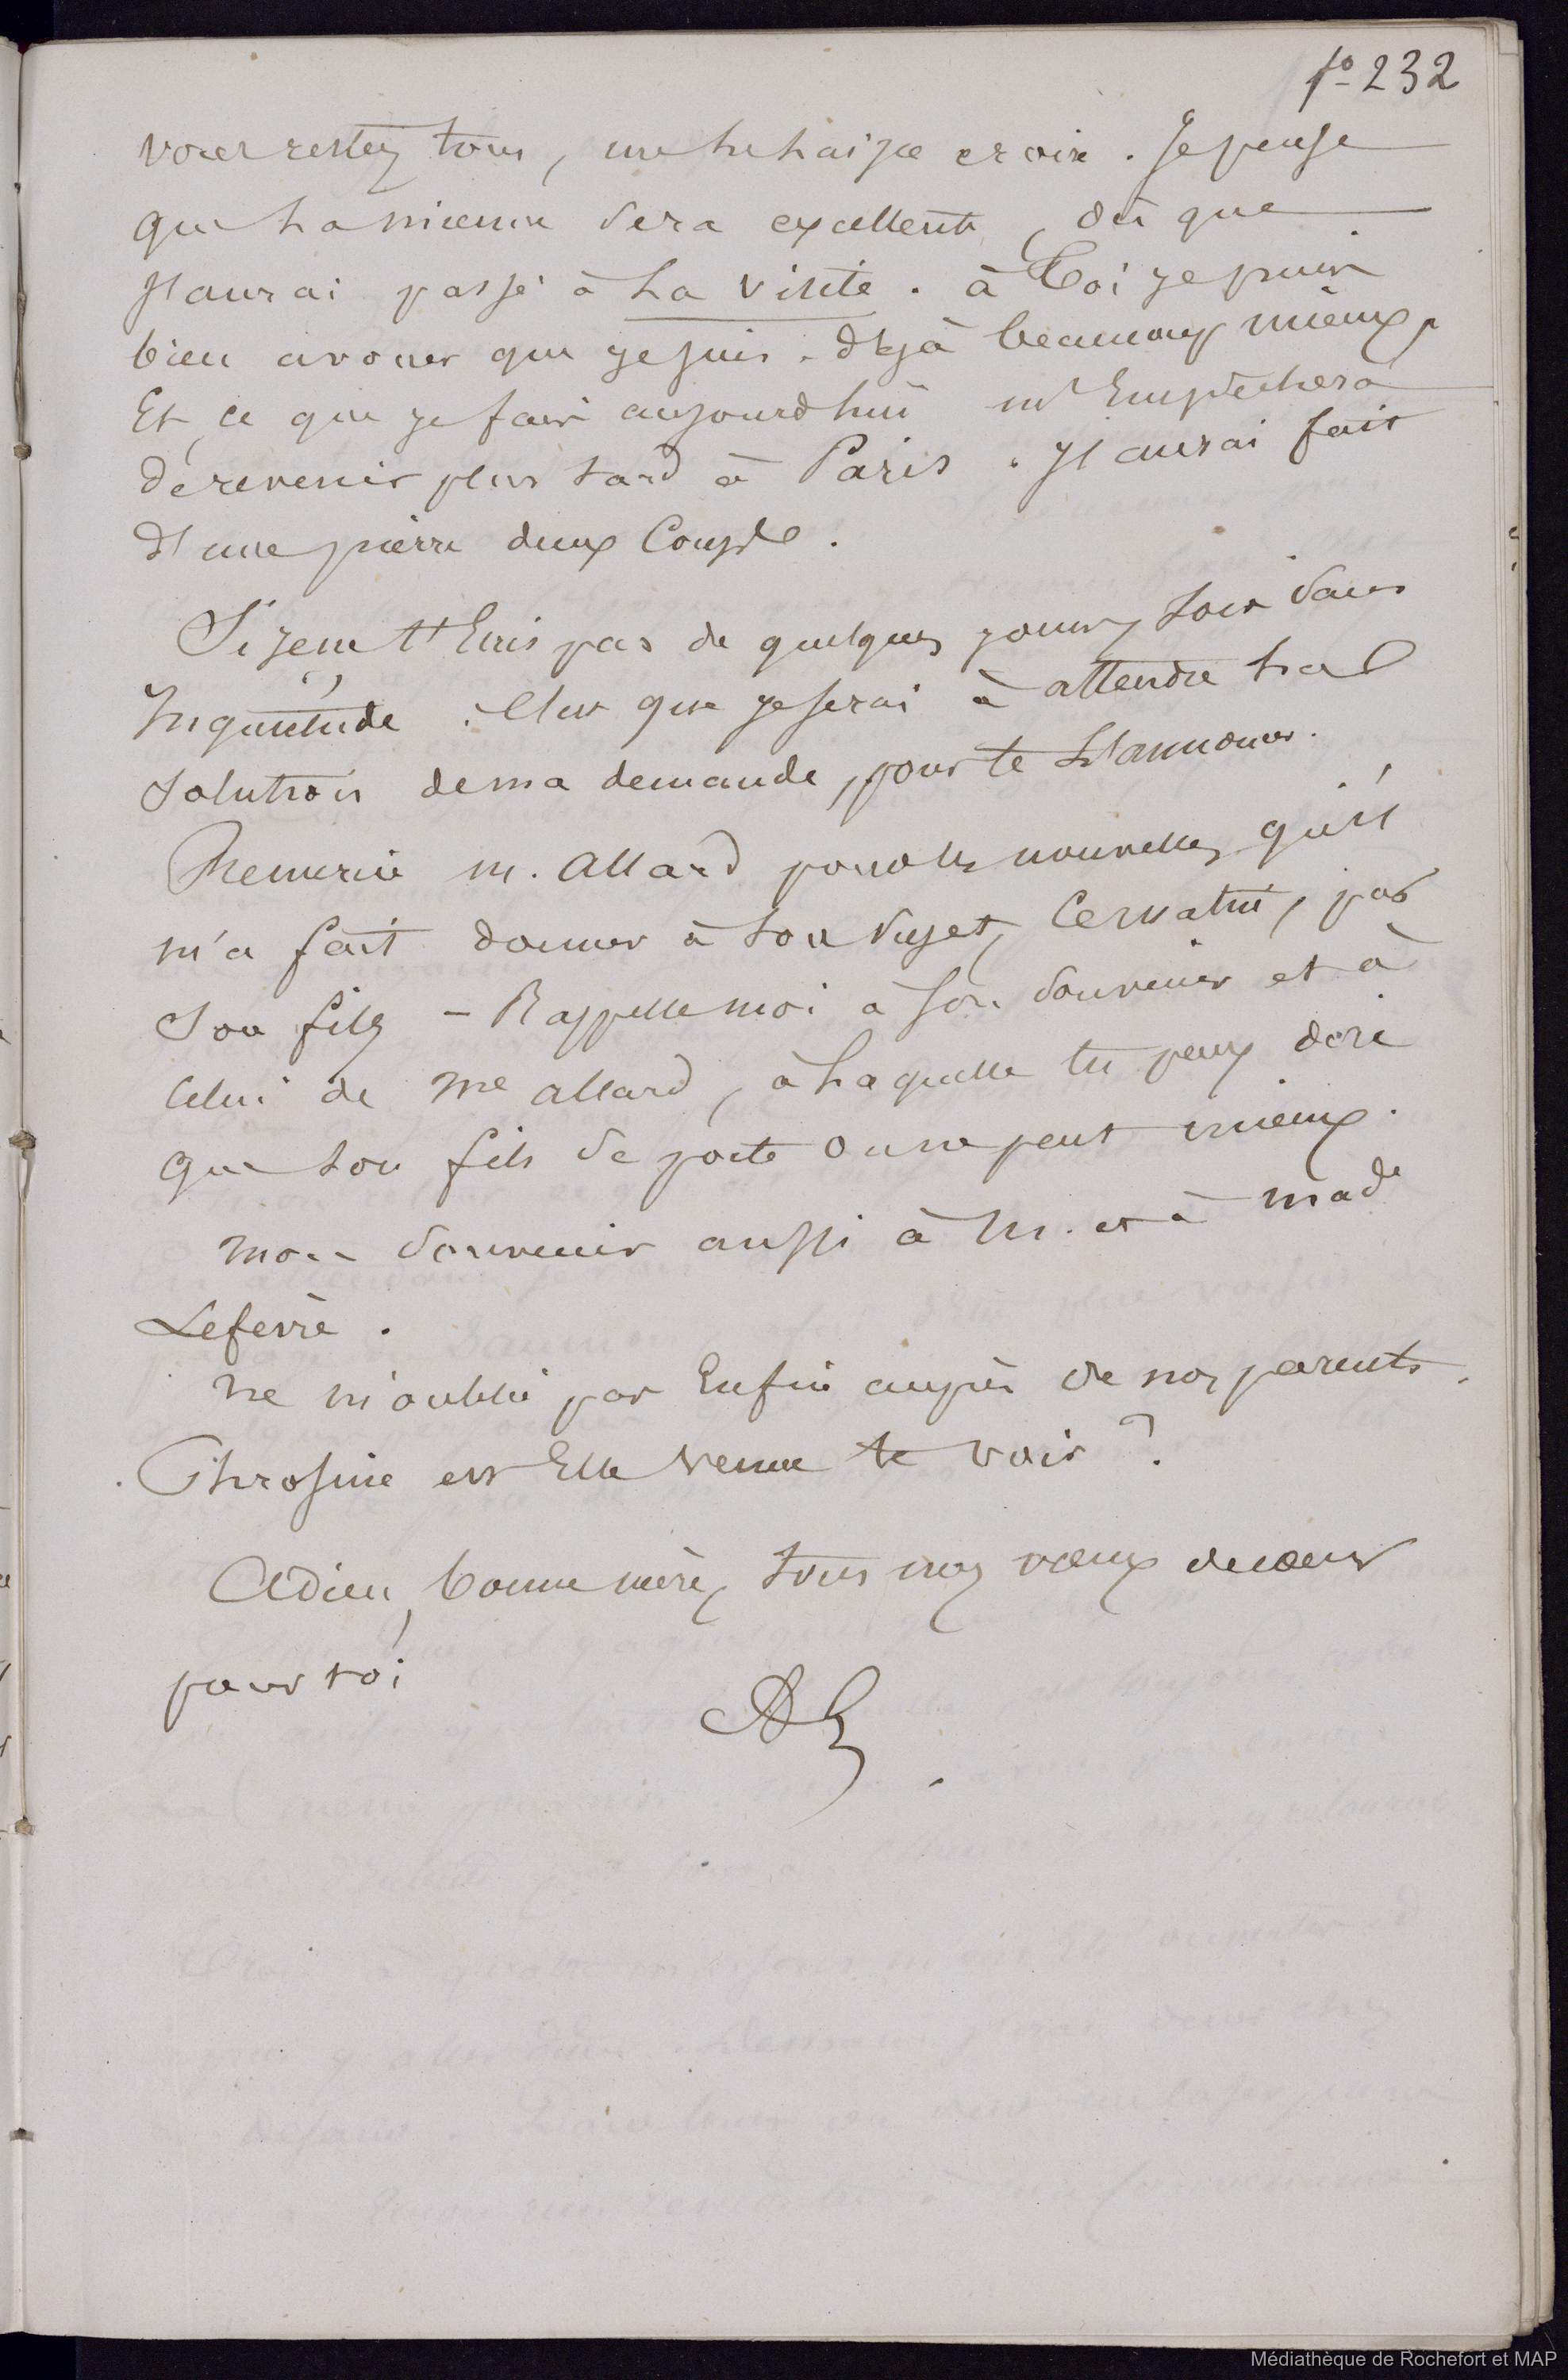 fo 232
vous restez tous, me le laisse croire. Je pense
que la mienne sera excellente, dès que
j'aurai passé à La Visite. à Toi je puis
bien avouer que je suis déjà beaucoup mieux,
Et ce que je fais aujourd'hui m'Empêchera
de revenir plus tard à Paris. J'aurai fait
d'une pierre deux Coups.
Si je ne t'Ecris pas de quelques jours, sois sans
Inquiétude. C'est que je serai à attendre la
solution de ma demande, pour te L'annoncer.
Remercie M. Allard pour les nouvelles, qu'il
m'a fait donner à ton sujet, Ce matin, par
son fils - Rappelle moi à son souvenir et à
Celui de Me Allard, à Laquelle tu peux dire
que son fils se porte on ne peut mieux.
Mon souvenir aussi à M. et à Made
Lefevre.
Ne m'oublie pas Enfin auprès de nos parents.
Phrosine est Elle venue te voir ?
Adieu, bonne mère, tous nos vœux de cœur
pour toi
Médiathèque de Rochefort et MAP